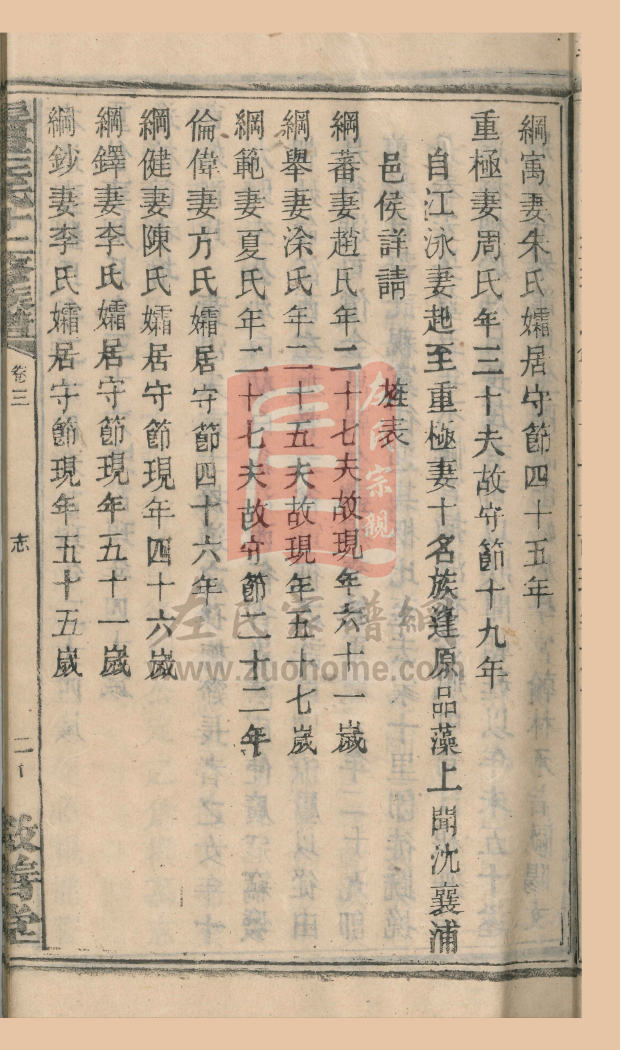 綱寓妻朱氏孀居守節四十五年
重極妻周氏年三十夫故守節十九年
自江泳妻起至重極妻十名族逢原品藻上聞沈襄浦
邑侯詳請　旌表
綱蕃妻趙氏年二十七夫故現年六十一嵗
綱舉妻凃氏年二十五夫故現年五十七嵗
綱範妻夏氏年二十七夫故守節二十二年
倫偉妻方氏孀居守節四十六年
綱健妻陳氏孀居守節現年四十六嵗
綱鐸妻李氏孀居守節現年五十一嵗
綱鈔妻李氏孀居守節現年五十五嵗
卷三
志
善堂
左氏宗親
左氏家譜網
www.zuohome.com